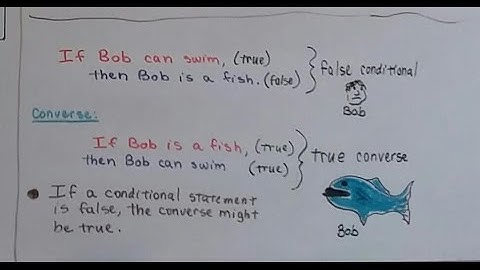 If Bob can swim, (true)
then Bob is a fish. (false)
false conditional
Bob
Converse:
If Bob is a fish, (true)
then Bob can swim (true)
true converse
• If a conditional statement
is false, the converse might
be true.
Bob